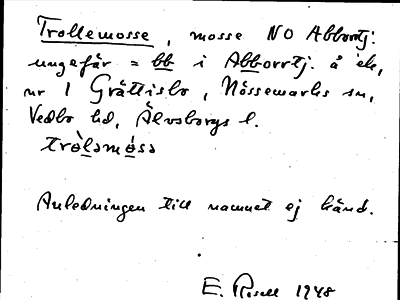 Trollemosse, mosse NO Abborrtj:
ungefär = bb i Abborrtj. å ek,
nr 1 Gråttislo, Nössemarks sn,
Vedbo hd, Älvsborgs l.
tròləmósə
Anledningen till namnet ej känd.
E. Rosell 1948